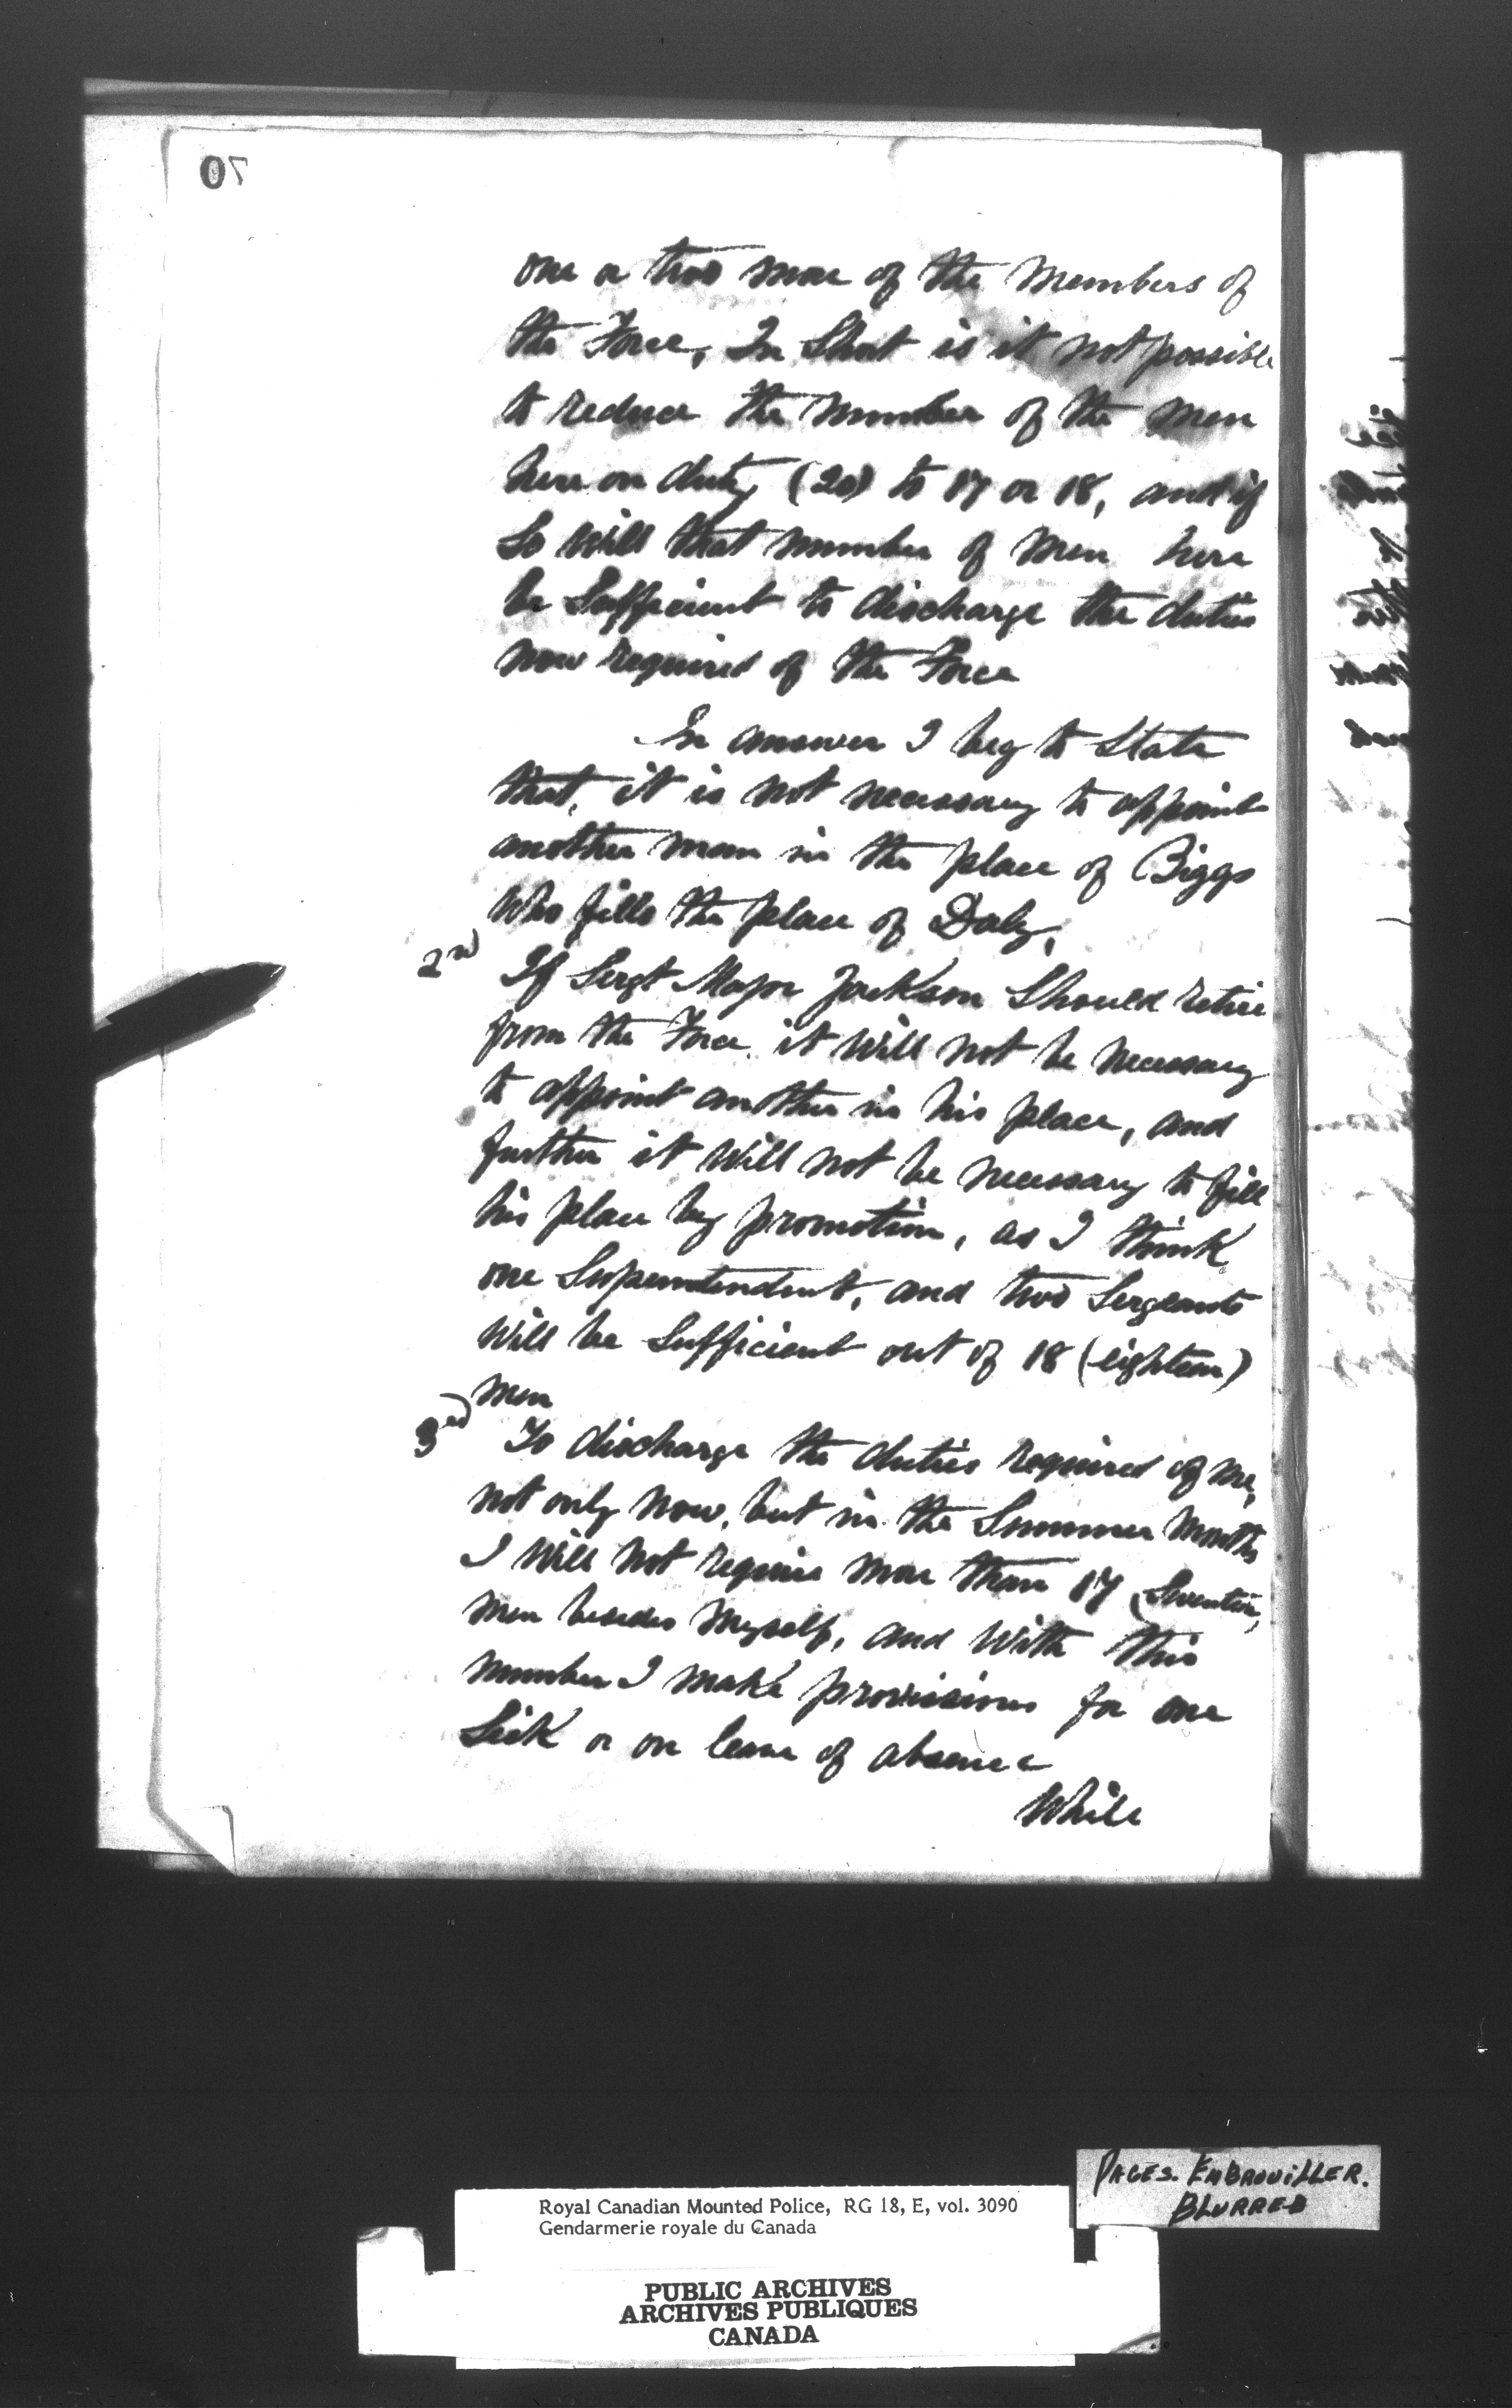 70
one or two more of the Members of
the Force, In Short is it not possible
to reduce the number of the men
here on duty (20) to 17 or 18, and if
So Will that number of men here
be Sufficient to discharge the duties
now required of the Force
In answer I beg to State
that, it is not necessary to appoint
another man in the place of Biggs
Who fills the place of Daly,
2nd If Sergt Major Jackson Should retire
from the Force. it Will not be necessary
to appoint another in his place, and
further it Will not be necessary to fill
his place by promotion, as I think
one Superintendent, and two Sergeants
Will be Sufficient out of 18 (eighteen)
men
3rd To discharge the duties required of me,
not only now, but in the Summer Months
I Will not require more than 17 (Seventeen,
men besides Myself, and With this
number I make provisions for one
Sick or on leave of absence
While
PAGES. EMBROUILLER.
BLURRED
Royal Canadian Mounted Police, RG 18, E, vol. 3090
Gendarmerie royale du Canada
PUBLIC ARCHIVES
ARCHIVES PUBLIQUES
CANADA